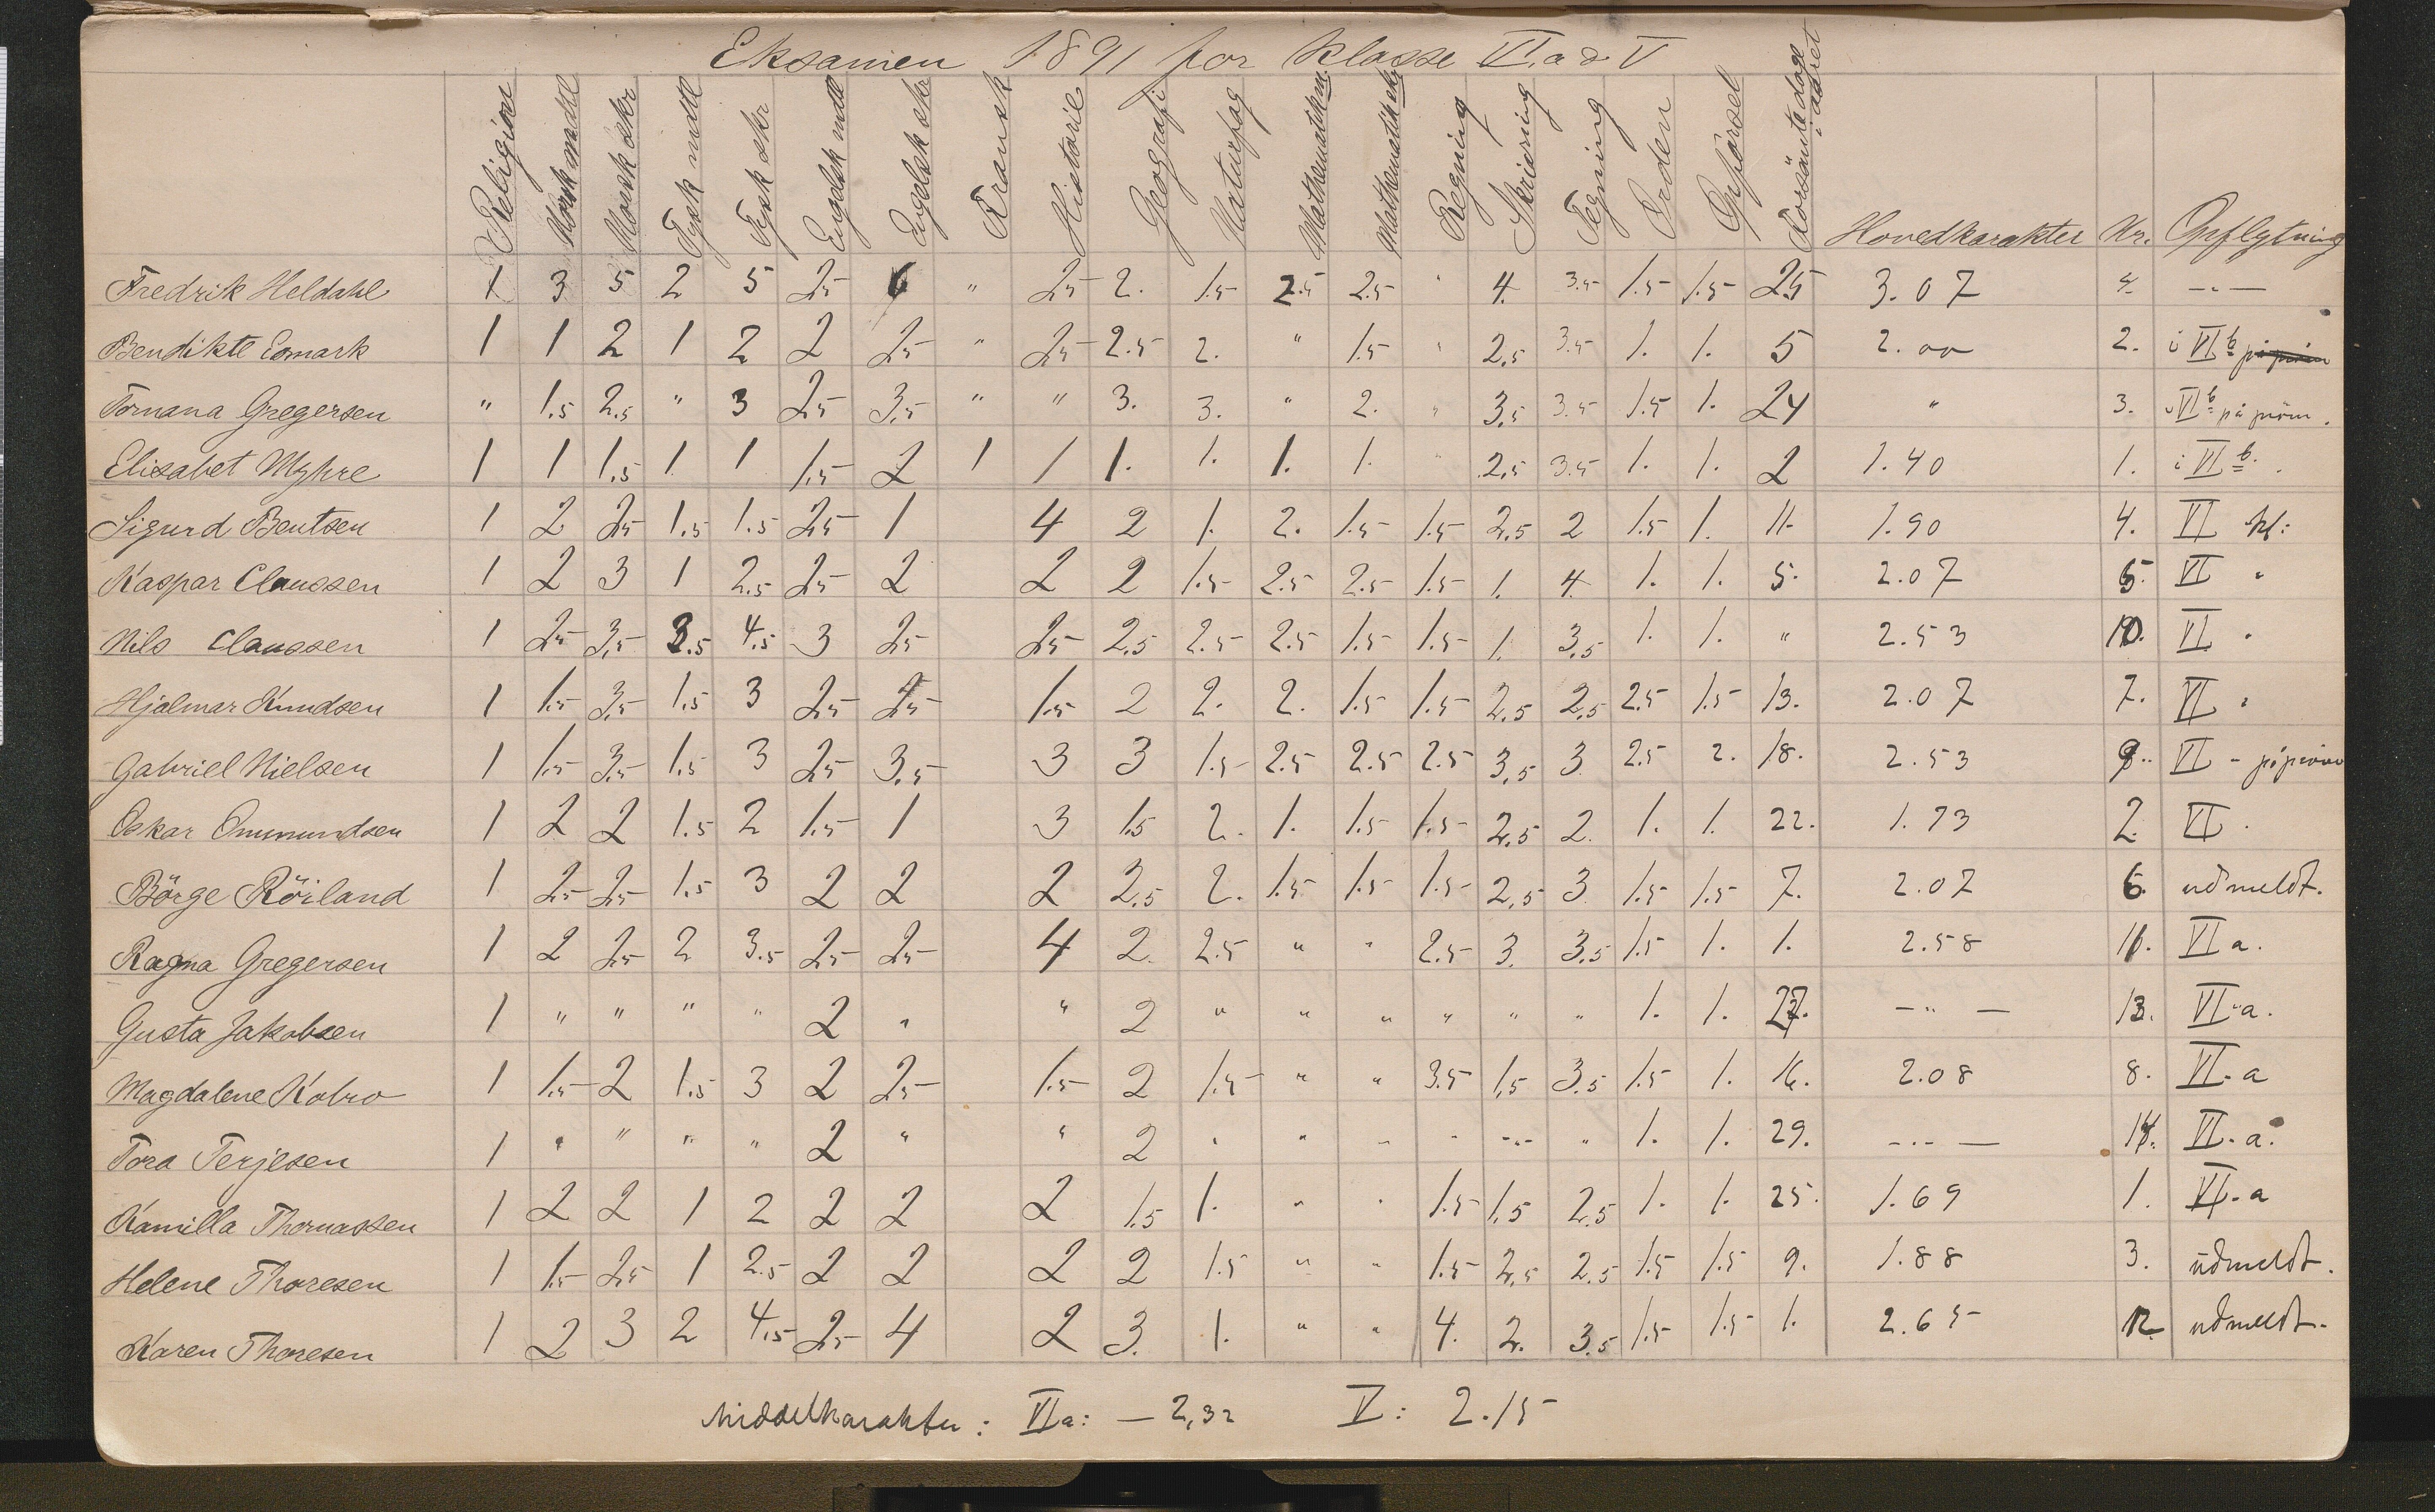 Eksamen 1891 for klasse VI a & V
Religion Norsk mdtl Norsk skr Tysk mdtl Tysk skr Engelsk mdtl Engelsk skr Fransk Historie Geografi Naturfag Mathematik m. Mathematik skr. Regning Skrivning Tegning Orden Opførsel Forsømte dage i aaret Hovedkarakter Nr. Opflytning
Fredrik Heldahl 1 3 5 2 5 2.5 6 " 2.5 2. 1.5 2.5 2.5 " 4. 3.5 1.5 1.5 25 3.07 4. —"—
Bendikte Esmark 1 1 2 1 2 2 2.5 " 2.5 2.5 2. " 1.5 " 2.5 3.5 1. 1. 5 2.00 2. i VI b på prøve
Tomana Gregersen " 1.5 2.5 " 3 2.5 3.5 " " 3. 3. " 2. " 3.5 3.5 1.5 1. 24 " 3. i VI b på prøve.
Elisabet Myhre 1 1 1.5 1 1 1.5 2 1 1 1. 1. 1. 1. " 2.5 3.5 1. 1. 2 1.40 1. i VI b.
Sigurd Bentsen 1 2 2.5 1.5 1.5 2.5 1 4 2 1. 2. 1.5 1.5 2.5 2 1.5 1. 11. 1.90 4. VI kl:
Kaspar Claussen 1 2 3 1 2.5 2.5 2 2 2 1.5 2.5 2.5 1.5 1. 4. 1. 1. 5. 2.07 5. VI "
Nils Claussen 1 2.5 3.5 3.5 4.5 3 2.5 2.5 2.5 2.5 2.5 1.5 1.5 1. 3.5 1. 1. " 2.53 10. VI "
Hjalmar Knudsen 1 1.5 3.5 1.5 3 2.5 2.5 1.5 2 2. 2. 1.5 1.5 2.5 2.5 2.5 1.5 13. 2.07 7. VI "
Gabriel Nielsen 1 1.5 3.5 1.5 3 2.5 3.5 3 3 1.5 2.5 2.5 2.5 3.5 3 2.5 2. 18. 2.53 9. VI - på prøve
Oskar Ommundsen 1 2 2 1.5 2 1.5 1 3 1.5 2. 1. 1.5 1.5 2.5 2. 1. 1. 22. 1.73 2. VI.
Börge Röiland 1 2.5 2.5 1.5 3 2 2 2 2.5 2. 1.5 1.5 1.5 2.5 3 1.5 1.5 7. 2.07 6. udmeldt.
Ragna Gregersen 1 2 2.5 2 3.5 2.5 2.5 4 2. 2.5 " " 2.5 3. 3.5 1.5 1. 1. 2.58 11. VI a.
Gusta Jakobsen 1 " " " " 2 " " 2 " " " " " " 1. 1. 27. —"— 13. VI a.
Magdalene Kolro 1 1.5 2 1.5 3 2 2.5 1.5 2 1.5 " " 3.5 1.5 3.5 1.5 1. 16. 2.08 8. VI a
Tora Terjesen 1 " " " " 2 " " 2 " " " " " " 1. 1. 29. —"— 14. VI a.
Kamilla Thomassen 1 2 2 1 2 2 2 2 1.5 1. " " 1.5 1.5 2.5 1. 1. 25. 1.69 1. VI a
Helene Thoresen 1 1.5 2.5 1 2.5 2 2 2 2 1.5 " " 1.5 2.5 2.5 1.5 1.5 9. 1.88 3. udmeldt.
Karen Thoresen 1 2 3 2 4.5 2.5 4 2 3. 1. " " 4. 2. 3.5 1.5 1.5 1. 2.65 12 udmeldt.
Middelkarakter: VI a: — 2,32 V: 2.15